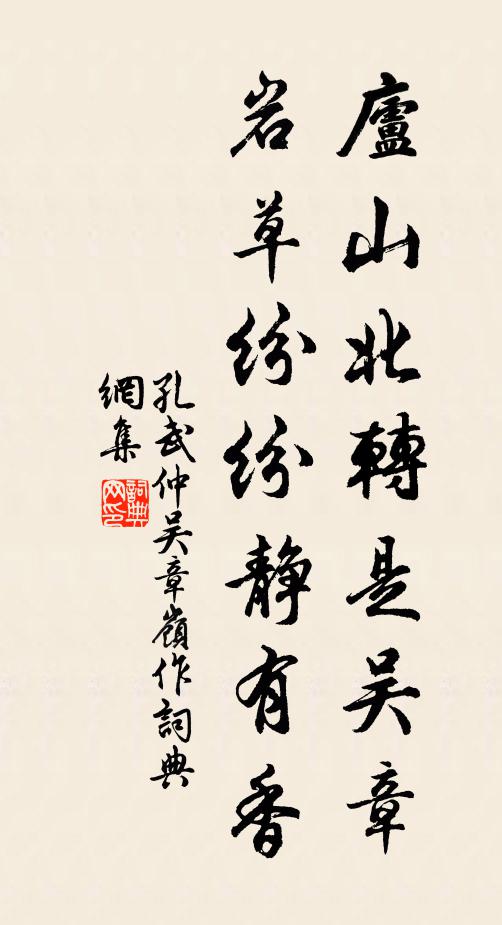 廬山北轉是吴章
岩草紛紛静有香
孔武仲吴章嶺作詞典
網集
詞典
网印